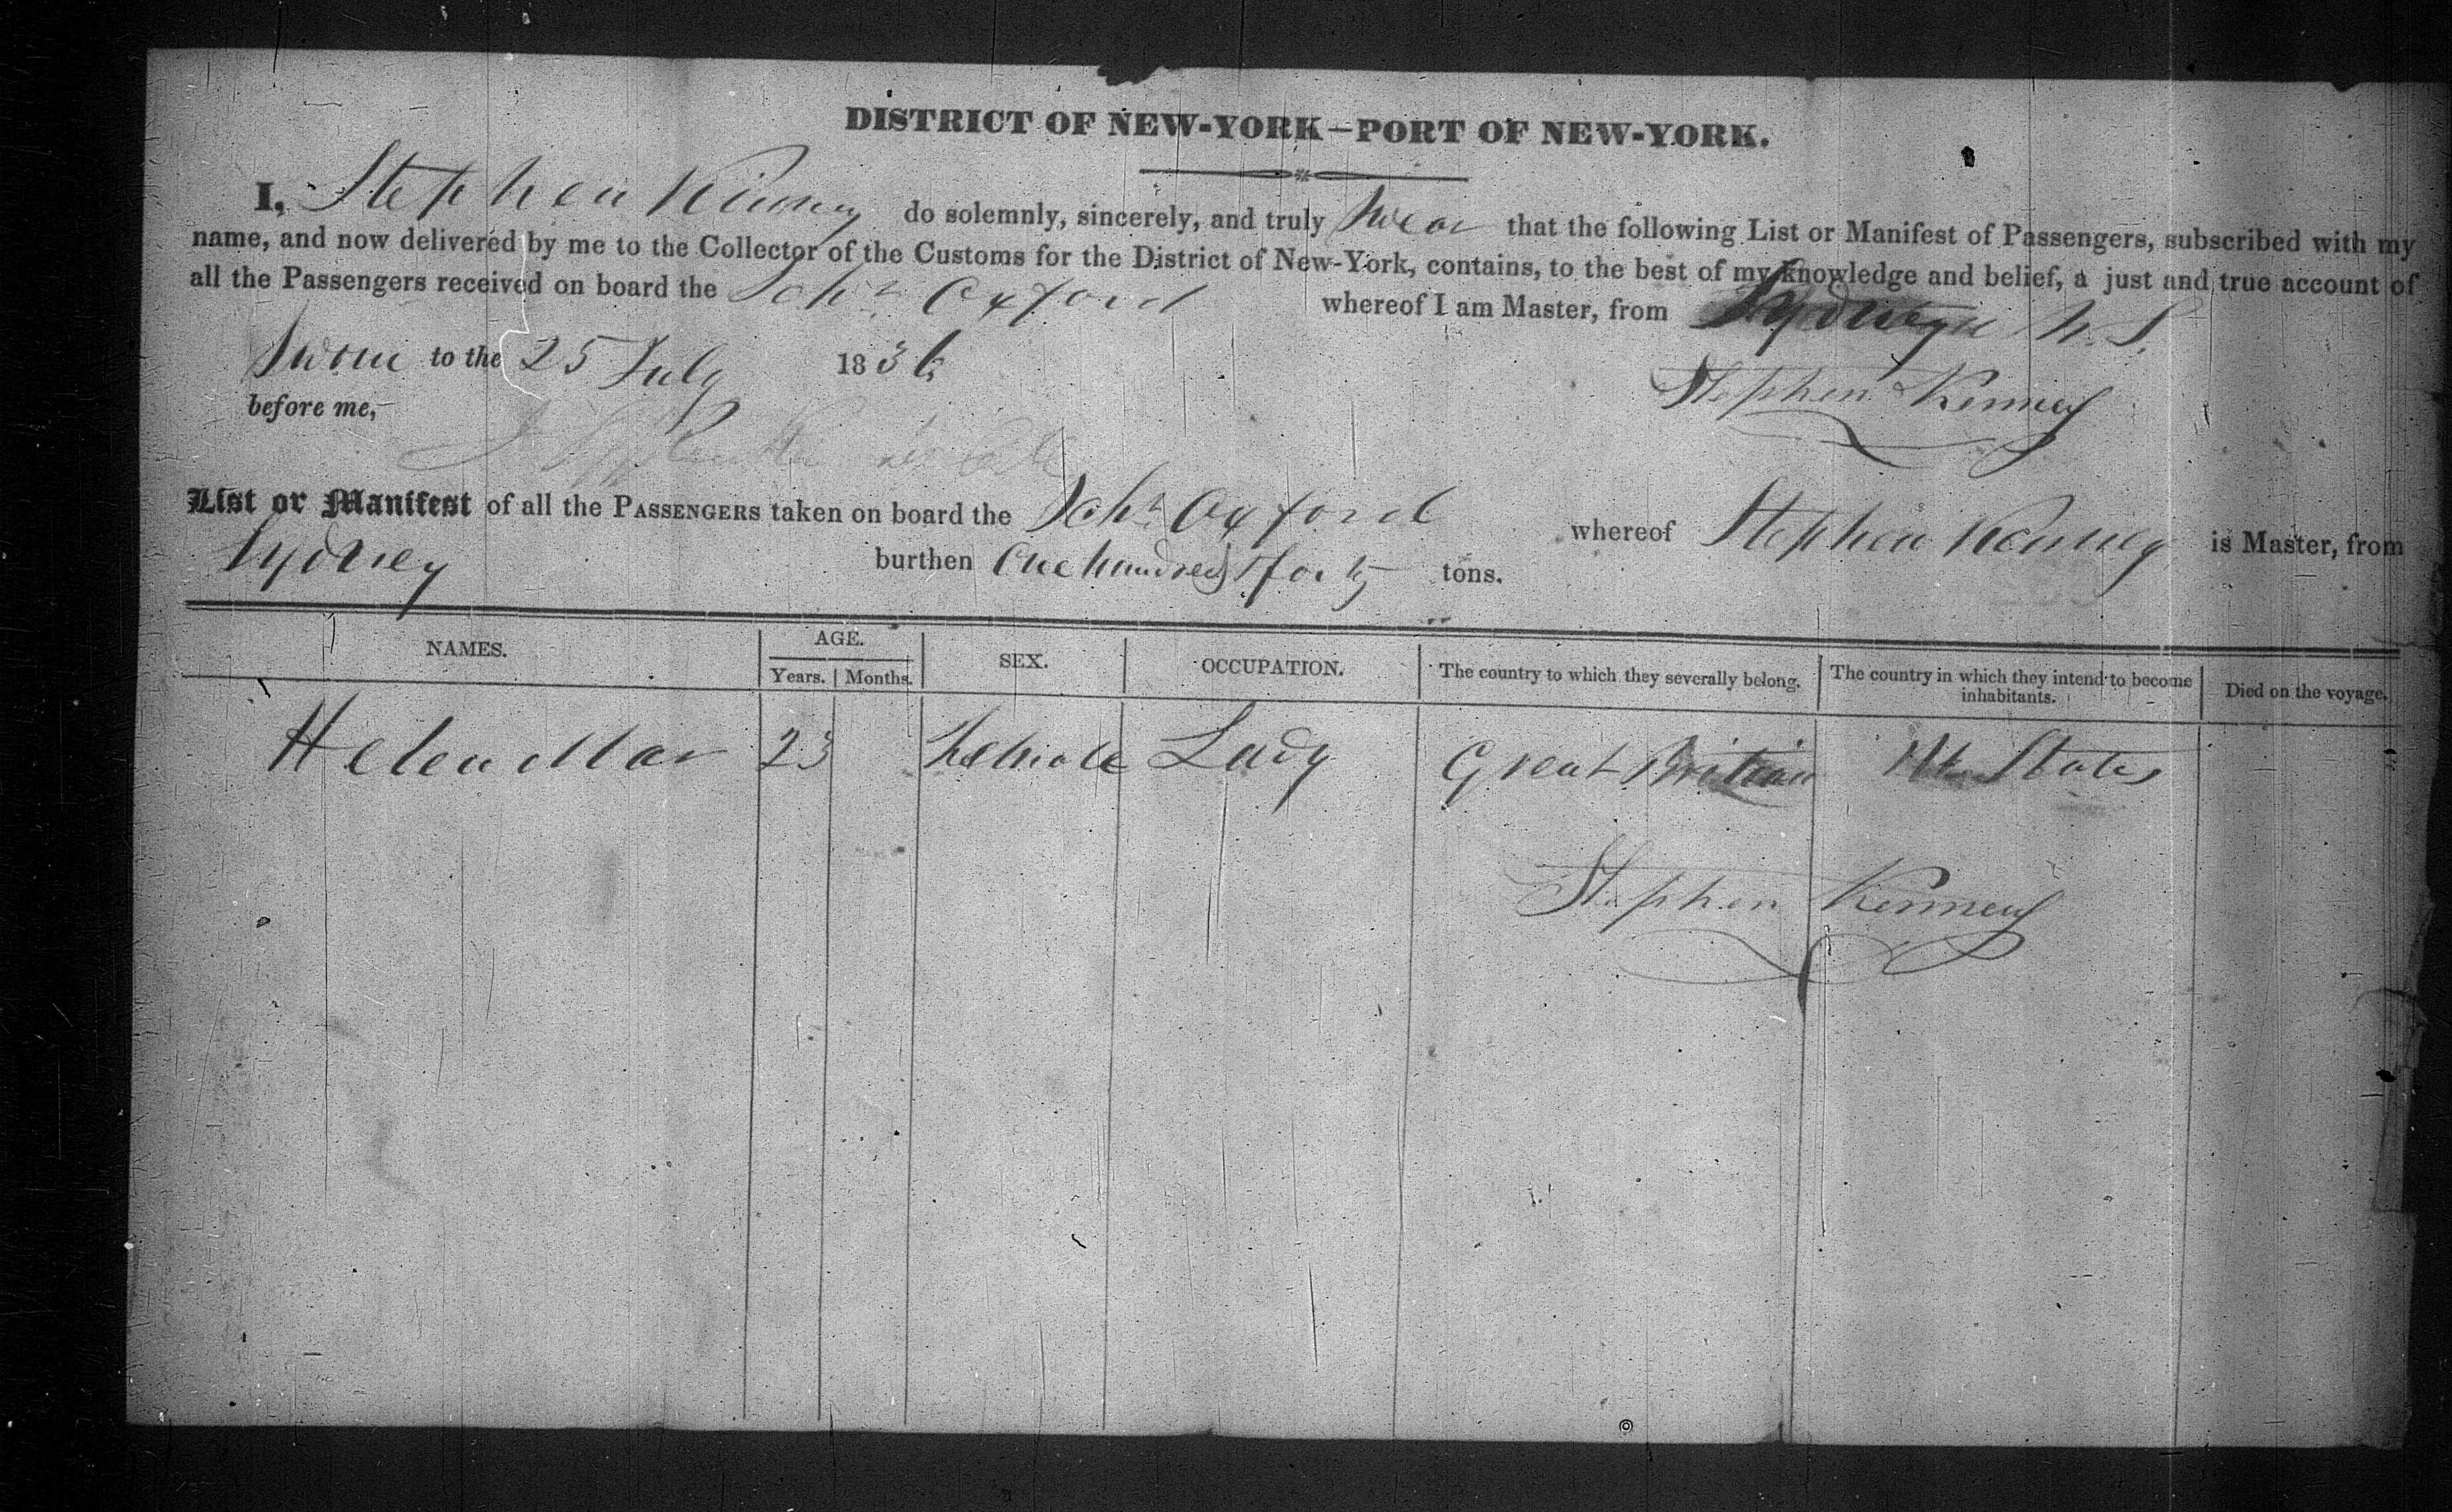 DISTRICT OF NEW-YORK—PORT OF NEW-YORK.
I, Stephen Kinney do solemnly, sincerely, and truly swear that the following List or Manifest of Passengers, subscribed with my
name, and now delivered by me to the Collector of the Customs for the District of New-York, contains, to the best of my knowledge and belief, a just and true account of
all the Passengers received on board the Schr Oxford whereof I am Master, from Sydney N. S.
Sworn to the 25 July 1836 Stephen Kenney
before me,
List or Manifest of all the PASSENGERS taken on board the Schr Oxford whereof Stephen Kenney is Master, from
Sydney burthen One hundred & forty tons.
NAMES. AGE. SEX. OCCUPATION. The country to which they severally belong. The country in which they intend to become inhabitants. Died on the voyage.
Years. Months.
Helen Mar 23 Female Lady Great Britian Ut States
Stephen Kenney